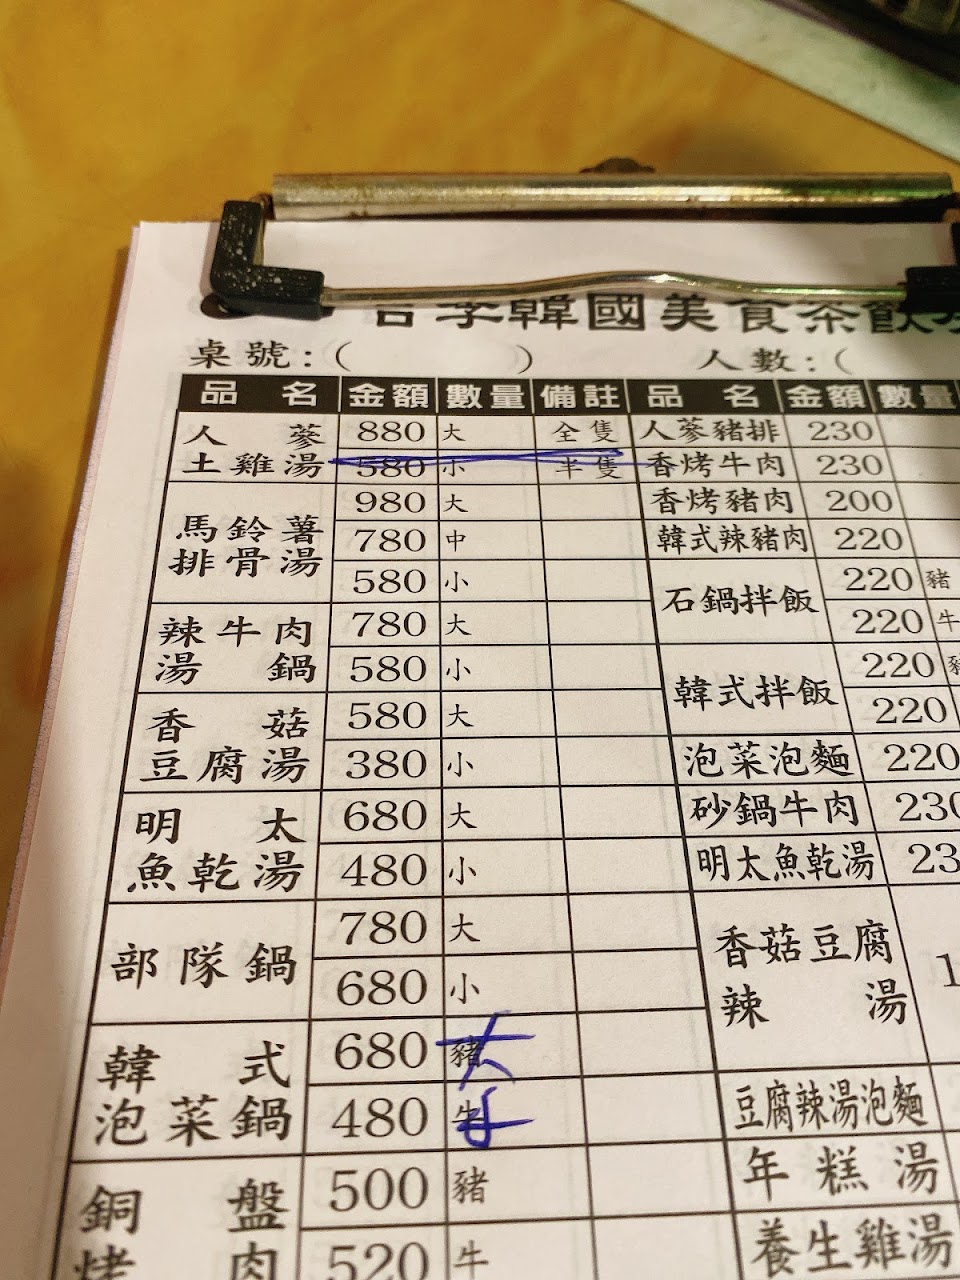 李韓國美食茶飲
桌號:( ) 人數:(
品名 金額 數量 備註 品名 金額 數量
人蔘土雞湯 880 大 全隻 人蔘豬排 230
580 小 半隻 香烤牛肉 230
馬鈴薯排骨湯 980 大 香烤豬肉 200
780 中 韓式辣豬肉 220
580 小 石鍋拌飯 220 豬
辣牛肉湯鍋 780 大 220 牛
580 小 韓式拌飯 220 豬
香菇豆腐湯 580 大 220
380 小 泡菜泡麵 220
明太魚乾湯 680 大 砂鍋牛肉 230
480 小 明太魚乾湯 23
部隊鍋 780 大 香菇豆腐辣湯 1
680 小
韓式泡菜鍋 680 豬 大
480 牛 豆腐辣湯泡麵
銅盤烤肉 500 豬 年糕湯
520 牛 養生雞湯